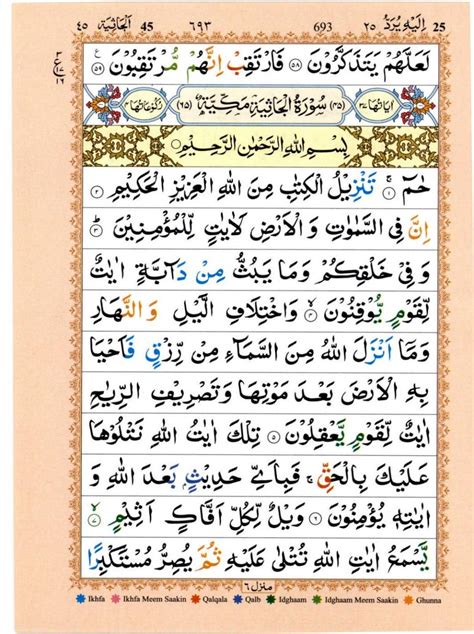 ٤٥ اَلْجَاثِيَة 45 ٦٩٣ 693 ٢٥ اِلَيْهِ يُرَدُّ 25
لَعَلَّهُمْ يَتَذَكَّرُوْنَ ٥٨ فَارْتَقِبْ اِنَّهُمْ مُّرْتَقِبُوْنَ ٥٩
ع ١٦
سُوْرَةُ الْجَاثِيَةِ مَكِّيَّةٌ
بِسْمِ اللهِ الرَّحْمٰنِ الرَّحِيْمِ
حٰمٓ ١ تَنْزِيْلُ الْكِتٰبِ مِنَ اللهِ الْعَزِيْزِ الْحَكِيْمِ ٢
اِنَّ فِى السَّمٰوٰتِ وَ الْاَرْضِ لَاٰيٰتٍ لِّلْمُؤْمِنِيْنَ ٣
وَ فِىْ خَلْقِكُمْ وَ مَا يَبُثُّ مِنْ دَآبَّةٍ اٰيٰتٌ
لِّقَوْمٍ يُّوْقِنُوْنَ ٤ وَ اخْتِلَافِ الَّيْلِ وَ النَّهَارِ
وَ مَاۤ اَنْزَلَ اللهُ مِنَ السَّمَآءِ مِنْ رِّزْقٍ فَاَحْيَا
بِهِ الْاَرْضَ بَعْدَ مَوْتِهَا وَ تَصْرِيْفِ الرِّيٰحِ
اٰيٰتٌ لِّقَوْمٍ يَّعْقِلُوْنَ ٥ تِلْكَ اٰيٰتُ اللهِ نَتْلُوْهَا
عَلَيْكَ بِالْحَقِّ فَبِاَىِّ حَدِيْثٍ بَعْدَ اللهِ وَ
اٰيٰتِهٖ يُؤْمِنُوْنَ ٦ وَيْلٌ لِّكُلِّ اَفَّاكٍ اَثِيْمٍ ٧
يَّسْمَعُ اٰيٰتِ اللهِ تُتْلٰى عَلَيْهِ ثُمَّ يُصِرُّ مُسْتَكْبِرًا
منزل ٦
Ikhfa Ikhfa Meem Saakin Qalqala Qalb Idghaam Idghaam Meem Saakin Ghunna